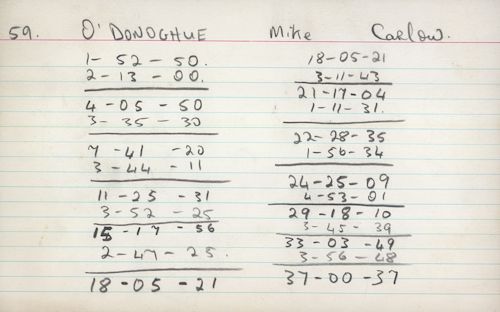 59. O'DONOGHUE Mike Carlow.
1- 52 - 50.
2 - 13 - 00.
4 - 05 - 50
3 - 35 - 30
7 - 41 - 20
3 - 44 - 11
11 - 25 - 31
3 - 52 - 25
15 - 17 - 56
2 - 47 - 25.
18 - 05 - 21
18-05-21
3-11-43
21-17-04
1-11-31.
22-28-35
1-56-34
24-25-09
4-53-01
29-18-10
3-45-39
33-03-49
3-56-48
37-00-37